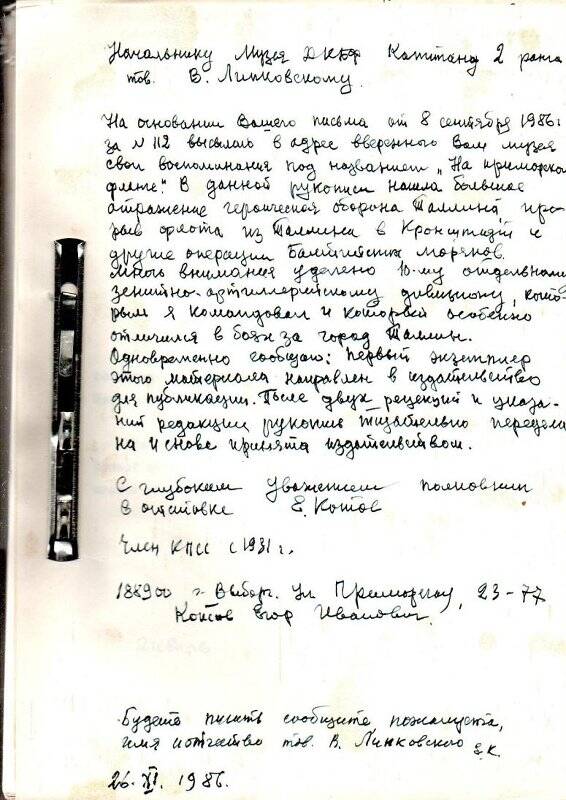 Начальнику Музея ДКБФ Капитану 2 ранга
тов. В. Липковскому.
На основании Вашего письма от 8 сентября 1986г
за N 112 высылаю в адрес вверенного Вам музея
свои воспоминания под названием „На приморском
фланге". В данной рукописи нашла большое
отражение героическая оборона Таллина, про-
рыв флота из Таллина в Кронштадт и
другие операции Балтийских моряков.
Много внимания уделено 10-му отдельному
зенитно-артиллерийскому дивизиону, кото-
рым я командовал и который особенно
отличился в боях за город Таллин.
Одновременно сообщаю: первый экземпляр
этого материала направлен в издательство
для публикации. После двух рецензий и указа-
ний редакции рукопись тщательно передела-
на и снова принята издательством.
С глубоким уважением полковник
в отставке Е. Котов
Член КПСС с 1931 г.
188900 г. Выборг. ул Приморская, 23-77
Котов Егор Иванович.
Будете писать сообщите пожалуйста,
имя и отчество тов. В. Линковского Е.К.
26. XI. 1986.